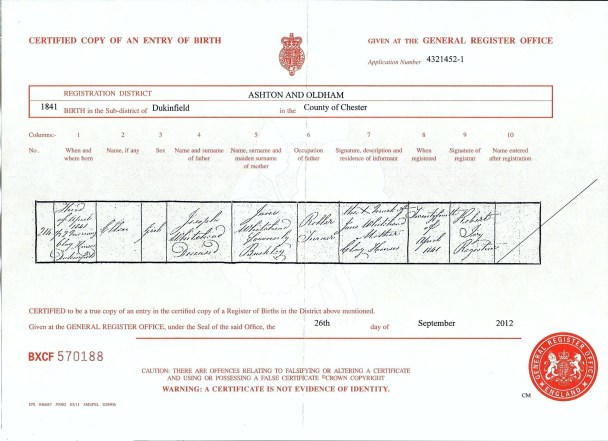 CERTIFIED COPY OF AN ENTRY OF BIRTH
GIVEN AT THE GENERAL REGISTER OFFICE
Application Number 4321452-1
REGISTRATION DISTRICT ASHTON AND OLDHAM
1841 BIRTH in the Sub-district of Dukinfield in the County of Chester
Columns:- 1 2 3 4 5 6 7 8 9 10
No. When and where born Name, if any Sex Name and surname of father Name, surname and maiden surname of mother Occupation of father Signature, description and residence of informant When registered Signature of registrar Name entered after registration
Third of April 1841
Clay Houses Dukinfield
Ellen
Girl
Joseph Whitehead Deceased
Jane Whitehead formerly Buckley
Roller Turner
The X Mark of Jane Whitehead Mother Clay Houses
of April 1841
Robert Registrar
CERTIFIED to be a true copy of an entry in the certified copy of a Register of Births in the District above mentioned.
Given at the GENERAL REGISTER OFFICE, under the Seal of the said Office, the 26th day of September 2012
BXCF 570188
CAUTION: THERE ARE OFFENCES RELATING TO FALSIFYING OR ALTERING A CERTIFICATE
AND USING OR POSSESSING A FALSE CERTIFICATE ©CROWN COPYRIGHT
WARNING: A CERTIFICATE IS NOT EVIDENCE OF IDENTITY.
GENERAL REGISTER OFFICE
ENGLAND
CM